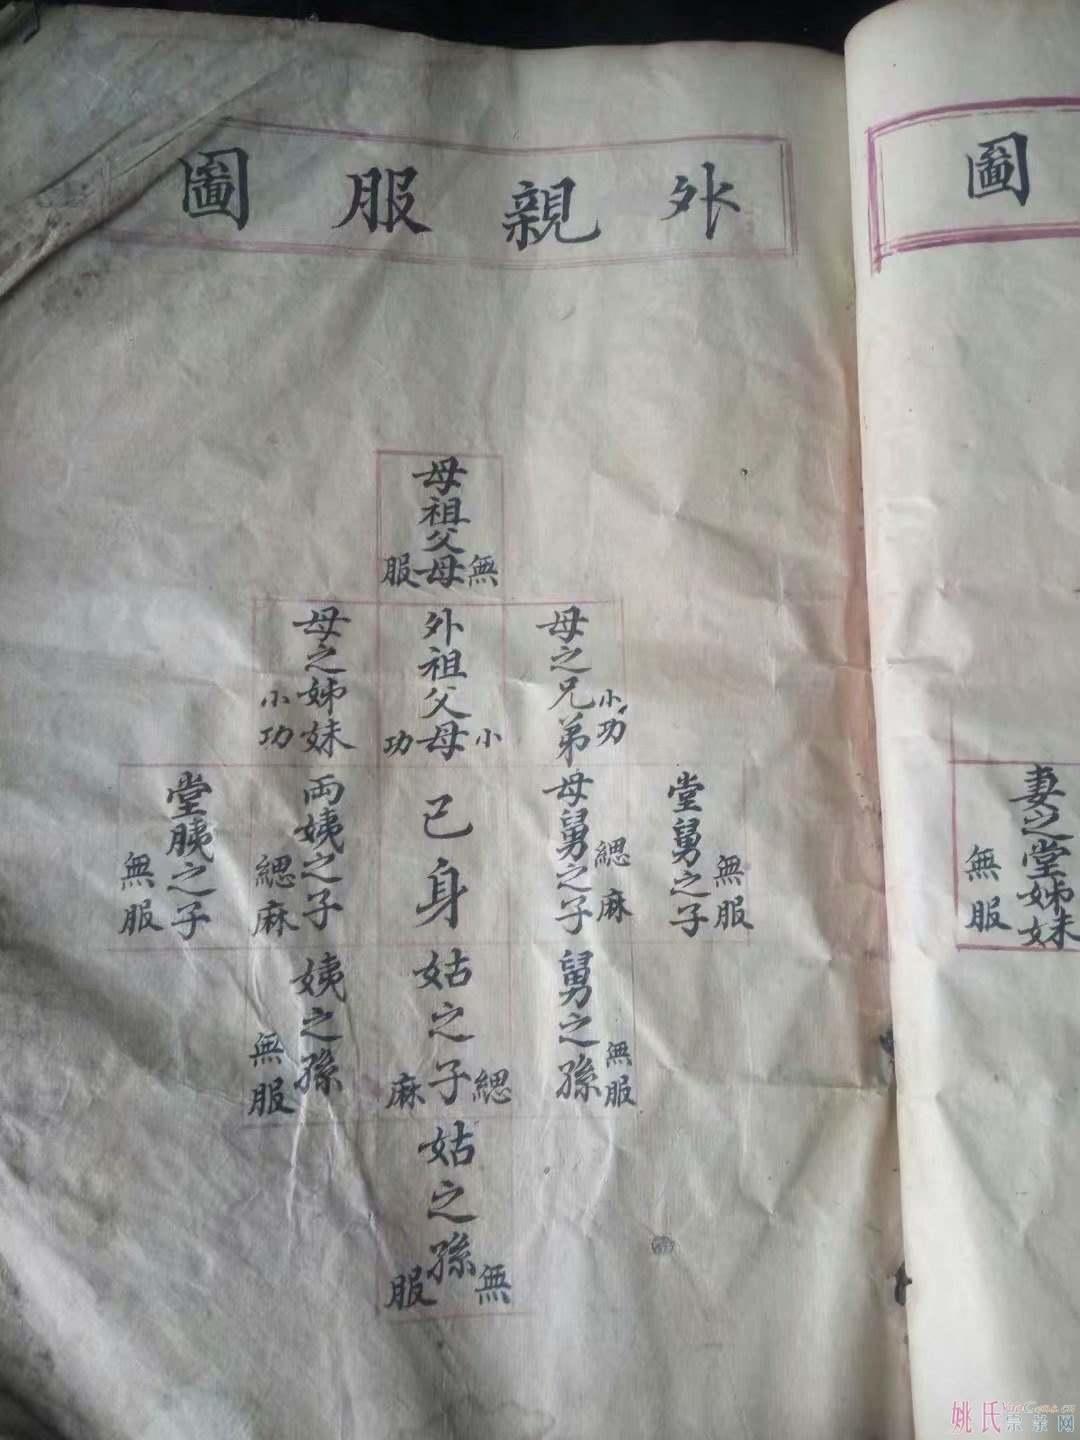 外親服圖
母祖父母
無服
外祖父母
小功
母之兄弟
小功
母之姊妹
小功
堂舅之子
無服
母舅之子
緦麻
己身
両姨之子
緦麻
堂胰之子
無服
舅之孫
無服
姑之子
緦麻
姨之孫
無服
姑之孫
無服
圖
妻之堂姊妹
無服
姚氏宗亲网
YaoGens.cn